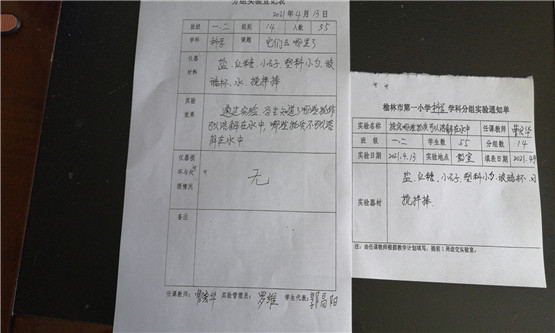 分组实验登记表
2021年4月13日
班级 一.二 组别 14 人数 55
学科 科学 课题 它们去哪里了
仪器
材料
盐、白糖、小石子、塑料小勺、玻
璃杯、水、搅拌棒
实验
效果
通过实验,学生知道了哪些物体
可以溶解在水中,哪些物体不可以溶
解在水中
仪器损
坏与处
理情况
无
备注
任课教师: 实验管理员: 罗维 学生代表:
榆林市第一小学科学学科分组实验通知单
实验名称 探究哪些物质可以溶解在水中 任课教师
班级 一.二 学生数 55 分组数 14
实验日期 2021.4.13 实验地点 教室 填表日期 2021.4.9
实验器材
盐、白糖、小石子、塑料小勺、玻璃杯、水
搅拌棒.
注:由任课教师根据教学计划填写,提前1周送交实验室。